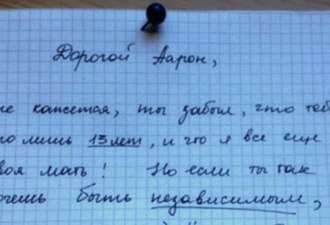 Дорогой Аарон,
не кажется, ты забыл, что теб
го лишь 13 лет, и что я все еще
воя мать! Но если ты так
очешь быть независимым,